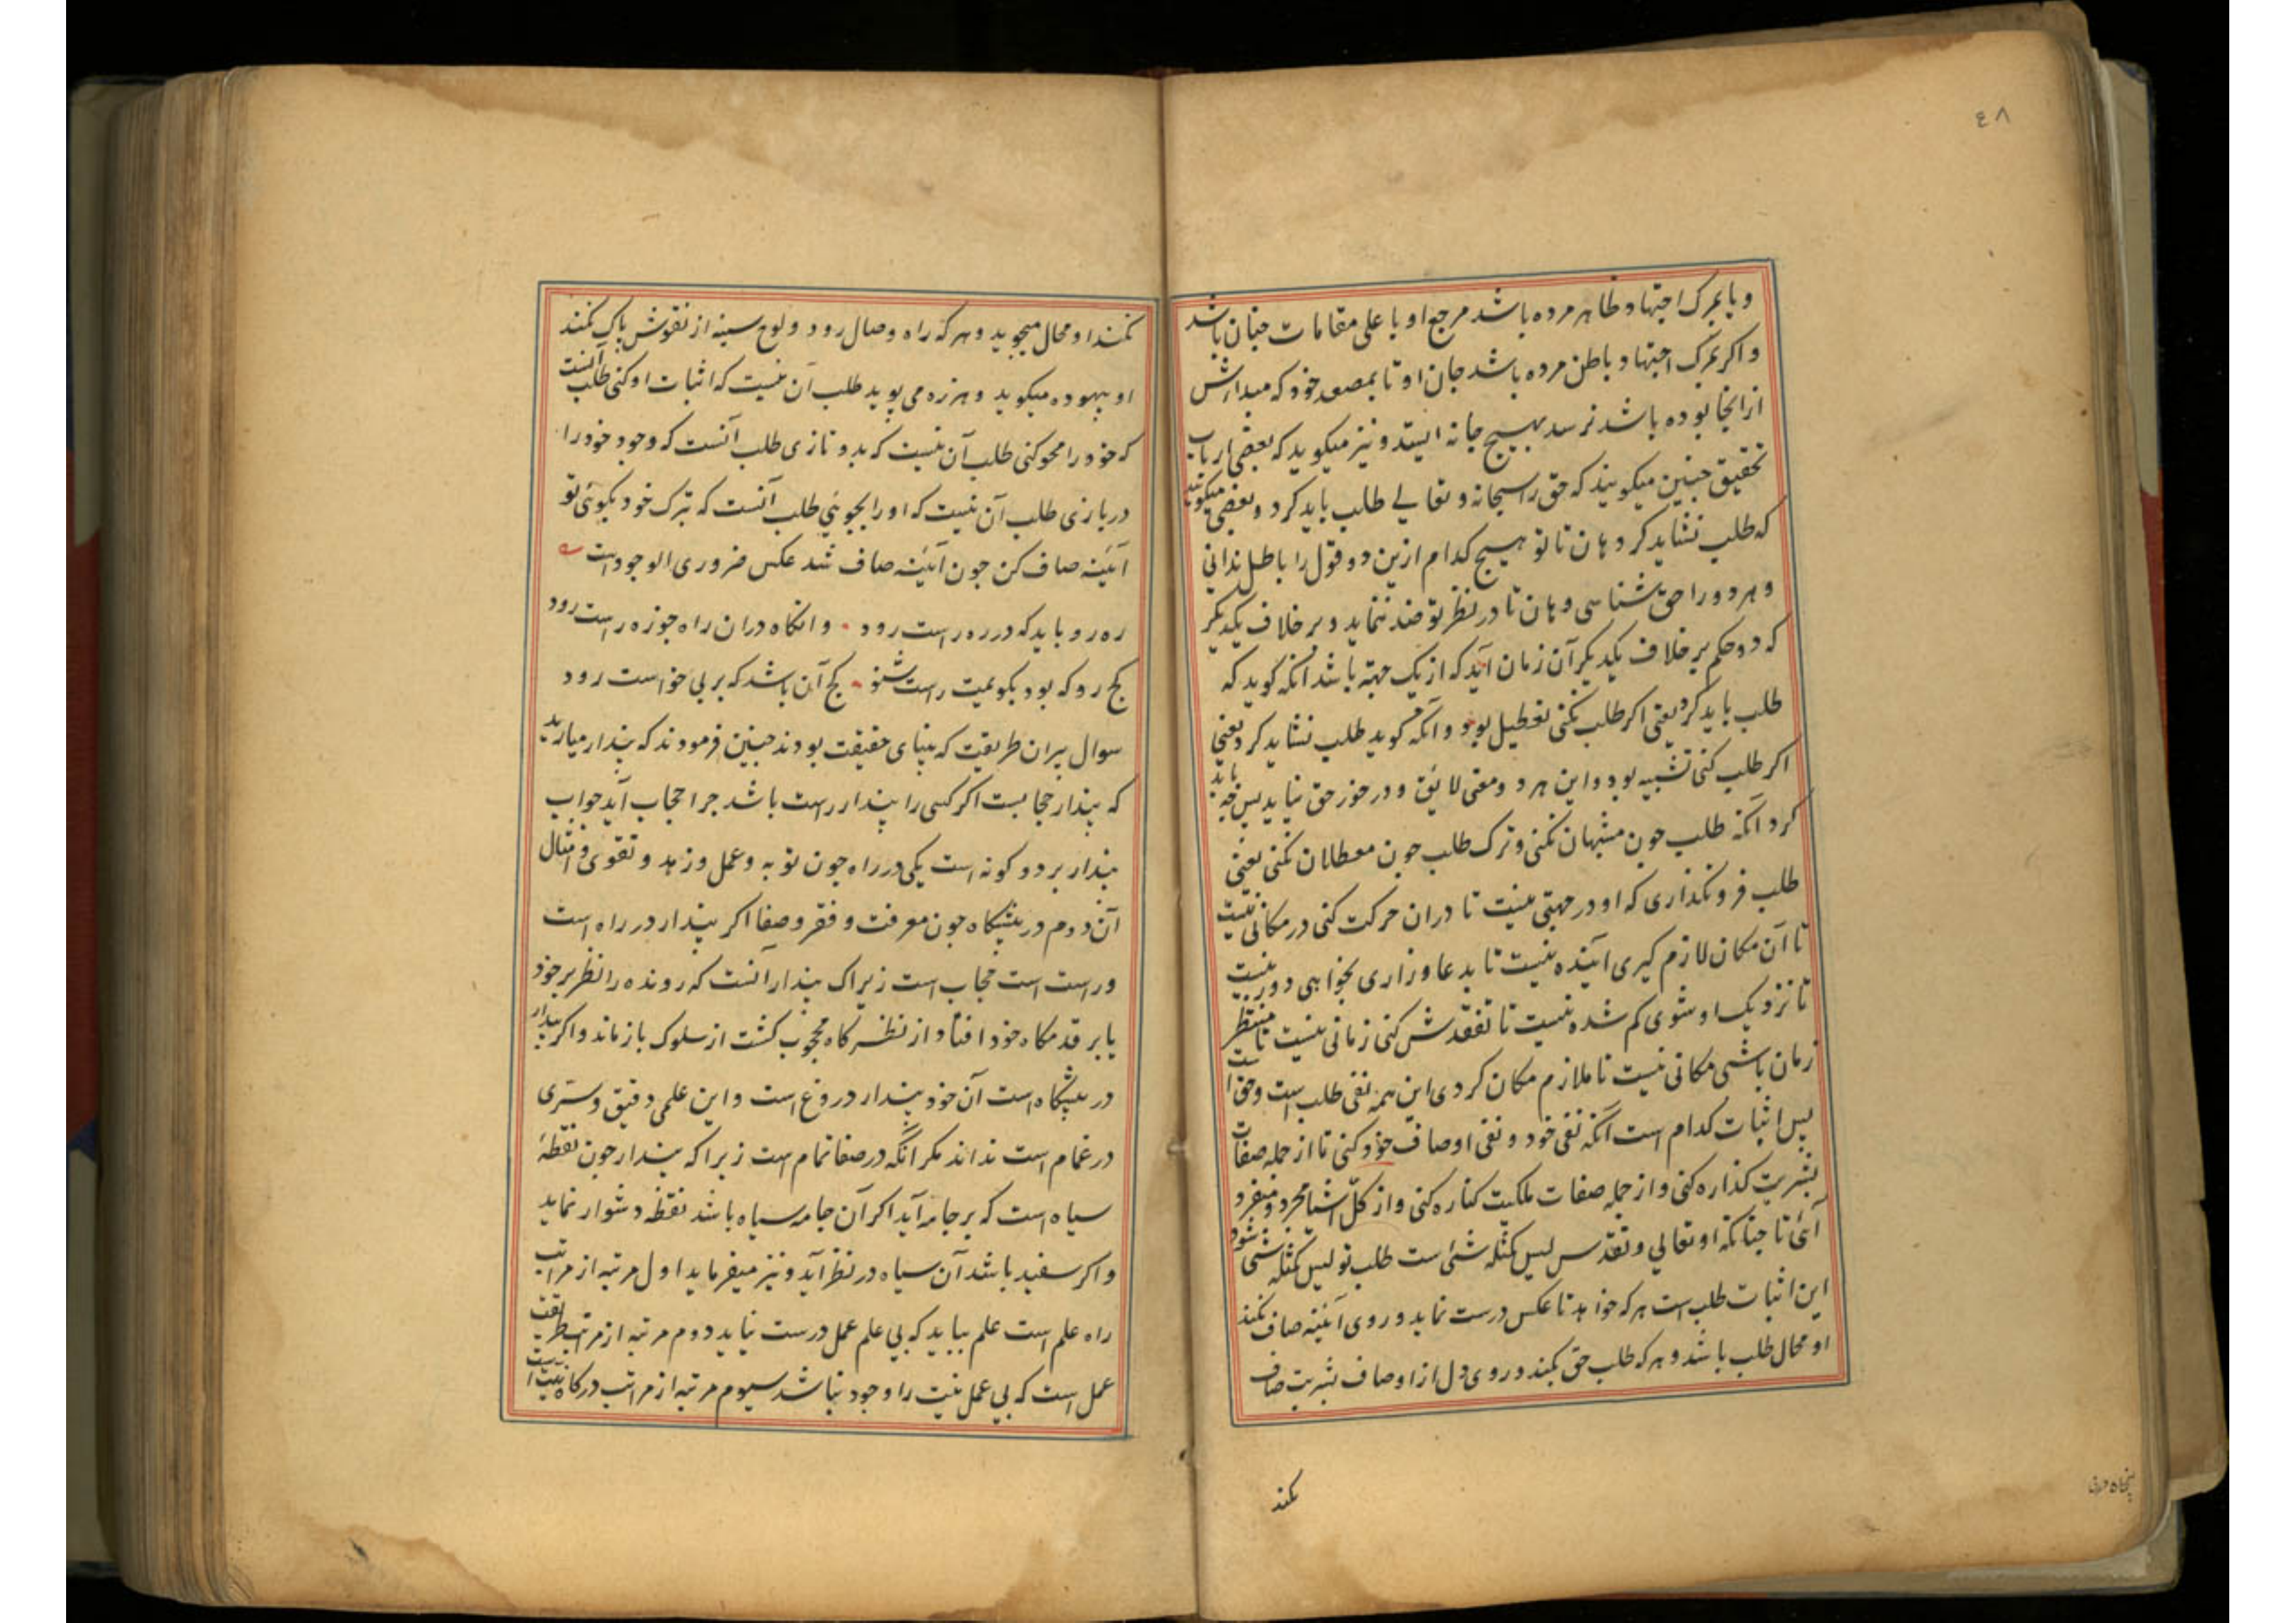 ٤٨
و یا بمرک اجتهاد ظاهر مرده باشد مرجع او با علی مقامات جنان باشد
و اکر بمرک اجتهاد باطن مرده باشد جان او تا بمصعد خود که مبدا ارش
ازانجا بوده باشد نرسد بهیچ جا نه ایستد و نیز میکوید که بعضی ارباب
تحقیق چنین میکویند که حق را سبحانه و تعالی طلب باید کرد و بعضی میکویند
که طلب نشاید کرد هان تا تو هیچ کدام ازین دو قول را باطل ندانی
و هر دو را حق شناسی و هان تا در نظر تو ضد ننماید و بر خلاف یکدیکر
که دو حکم بر خلاف یکدیکر آن زمان آید که از یک جهته باشد آنکه کوید که
طلب باید کرد یعنی اکر طلب نکنی تعطیل بود و آنکه کوید طلب نشاید کرد یعنی
اکر طلب کنی تشبیه بود و این هر دو معنی لایق و در خور حق نیاید پس چه باید
کرد آنکه طلب چون مشبهان نکنی و ترک طلب چون معطلان نکنی یعنی
طلب فرو نکذاری که او در جهتی نیست تا دران حرکت کنی در مکانی نیست
تا آن مکان لازم کیری آینده نیست تا بدعا و زاری بخواهی دور نیست
تا نزدیک او شوی کم شده نیست تا تفقدش کنی زمانی نیست تا منتظر
زمان باشی مکانی نیست تا ملازم مکان کردی این همه نفی طلب است و حق است
پس اثبات کدام است آنکه نفی خود و نفی اوصاف خود کنی تا از جمله صفات
بشریت کذاره کنی و از جمله صفات ملکیت کناره کنی و از کل اشیا مجرد و منفرد
آئی تا چنانکه او تعالی و تقدس لیس کمثله شئ است طلب تو لیس کمثله شئ شود
این اثبات طلب است هر که خواهد تا عکس درست نماید و روی آئینه صاف نکند
او محال طلب باشد و هر که طلب حق بکند و روی دل از اوصاف بشریت صاف
نکند
پنجاه ورق
نکند او محال میجوید و هر که راه وصال رود و لوح سینه از نقوش پاک نکند
او بیهوده میکوید و هرزه می پوید طلب آن نیست که اثبات او کنی طلب آنست
که خود را محو کنی طلب آن نیست که بدو نازی طلب آنست که وجود خود را
در بازی طلب آن نیست که او را بجوئی طلب آنست که بترک خود بکوئی تو
آئینه صاف کن چون آئینه صاف شد عکس ضروری الوجود است
ره رو باید که در ره راست رود وانکاه دران راه چو زه راست رود
کج رو که بود بکویمت راست شنو کج آن باشد که بر پی خواست رود
سوال پیران طریقت که بینای حقیقت بودند چنین فرمودند که پندار میارید
که پندار حجابست اکر کسی را پندار راست باشد چرا حجاب آید جواب
پندار بر دو کونه است یکی در راه چون توبه و عمل و زهد و تقوی و امثال
آن دوم در پیشکاه چون معرفت و فقر و صفا اکر پندار در راه است
و راست است حجاب است زیراک پندار آنست که رونده را نظر بر خود
یا بر قدمکاه خود افتاد از نظرکاه محجوب کشت از سلوک باز ماند و اکر پندار
در پیشکاه است آن خود پندار دروغ است و این علمی دقیق و سری
در غمام است نداند مکر آنکه در صفا تمام است زیرا که پندار چون نقطهٔ
سیاه است که بر جامه آید اکر آن جامه سیاه باشد نقطه دشوار نماید
و اکر سفید باشد آن سیاه در نظر آید و نیز میفرماید اول مرتبه از مراتب
راه علم است علم بباید که بی علم عمل درست نیاید دوم مرتبه از مراتب طریقت
عمل است که بی عمل نیت را وجود نباشد سیوم مرتبه از مراتب درکاه نیت است